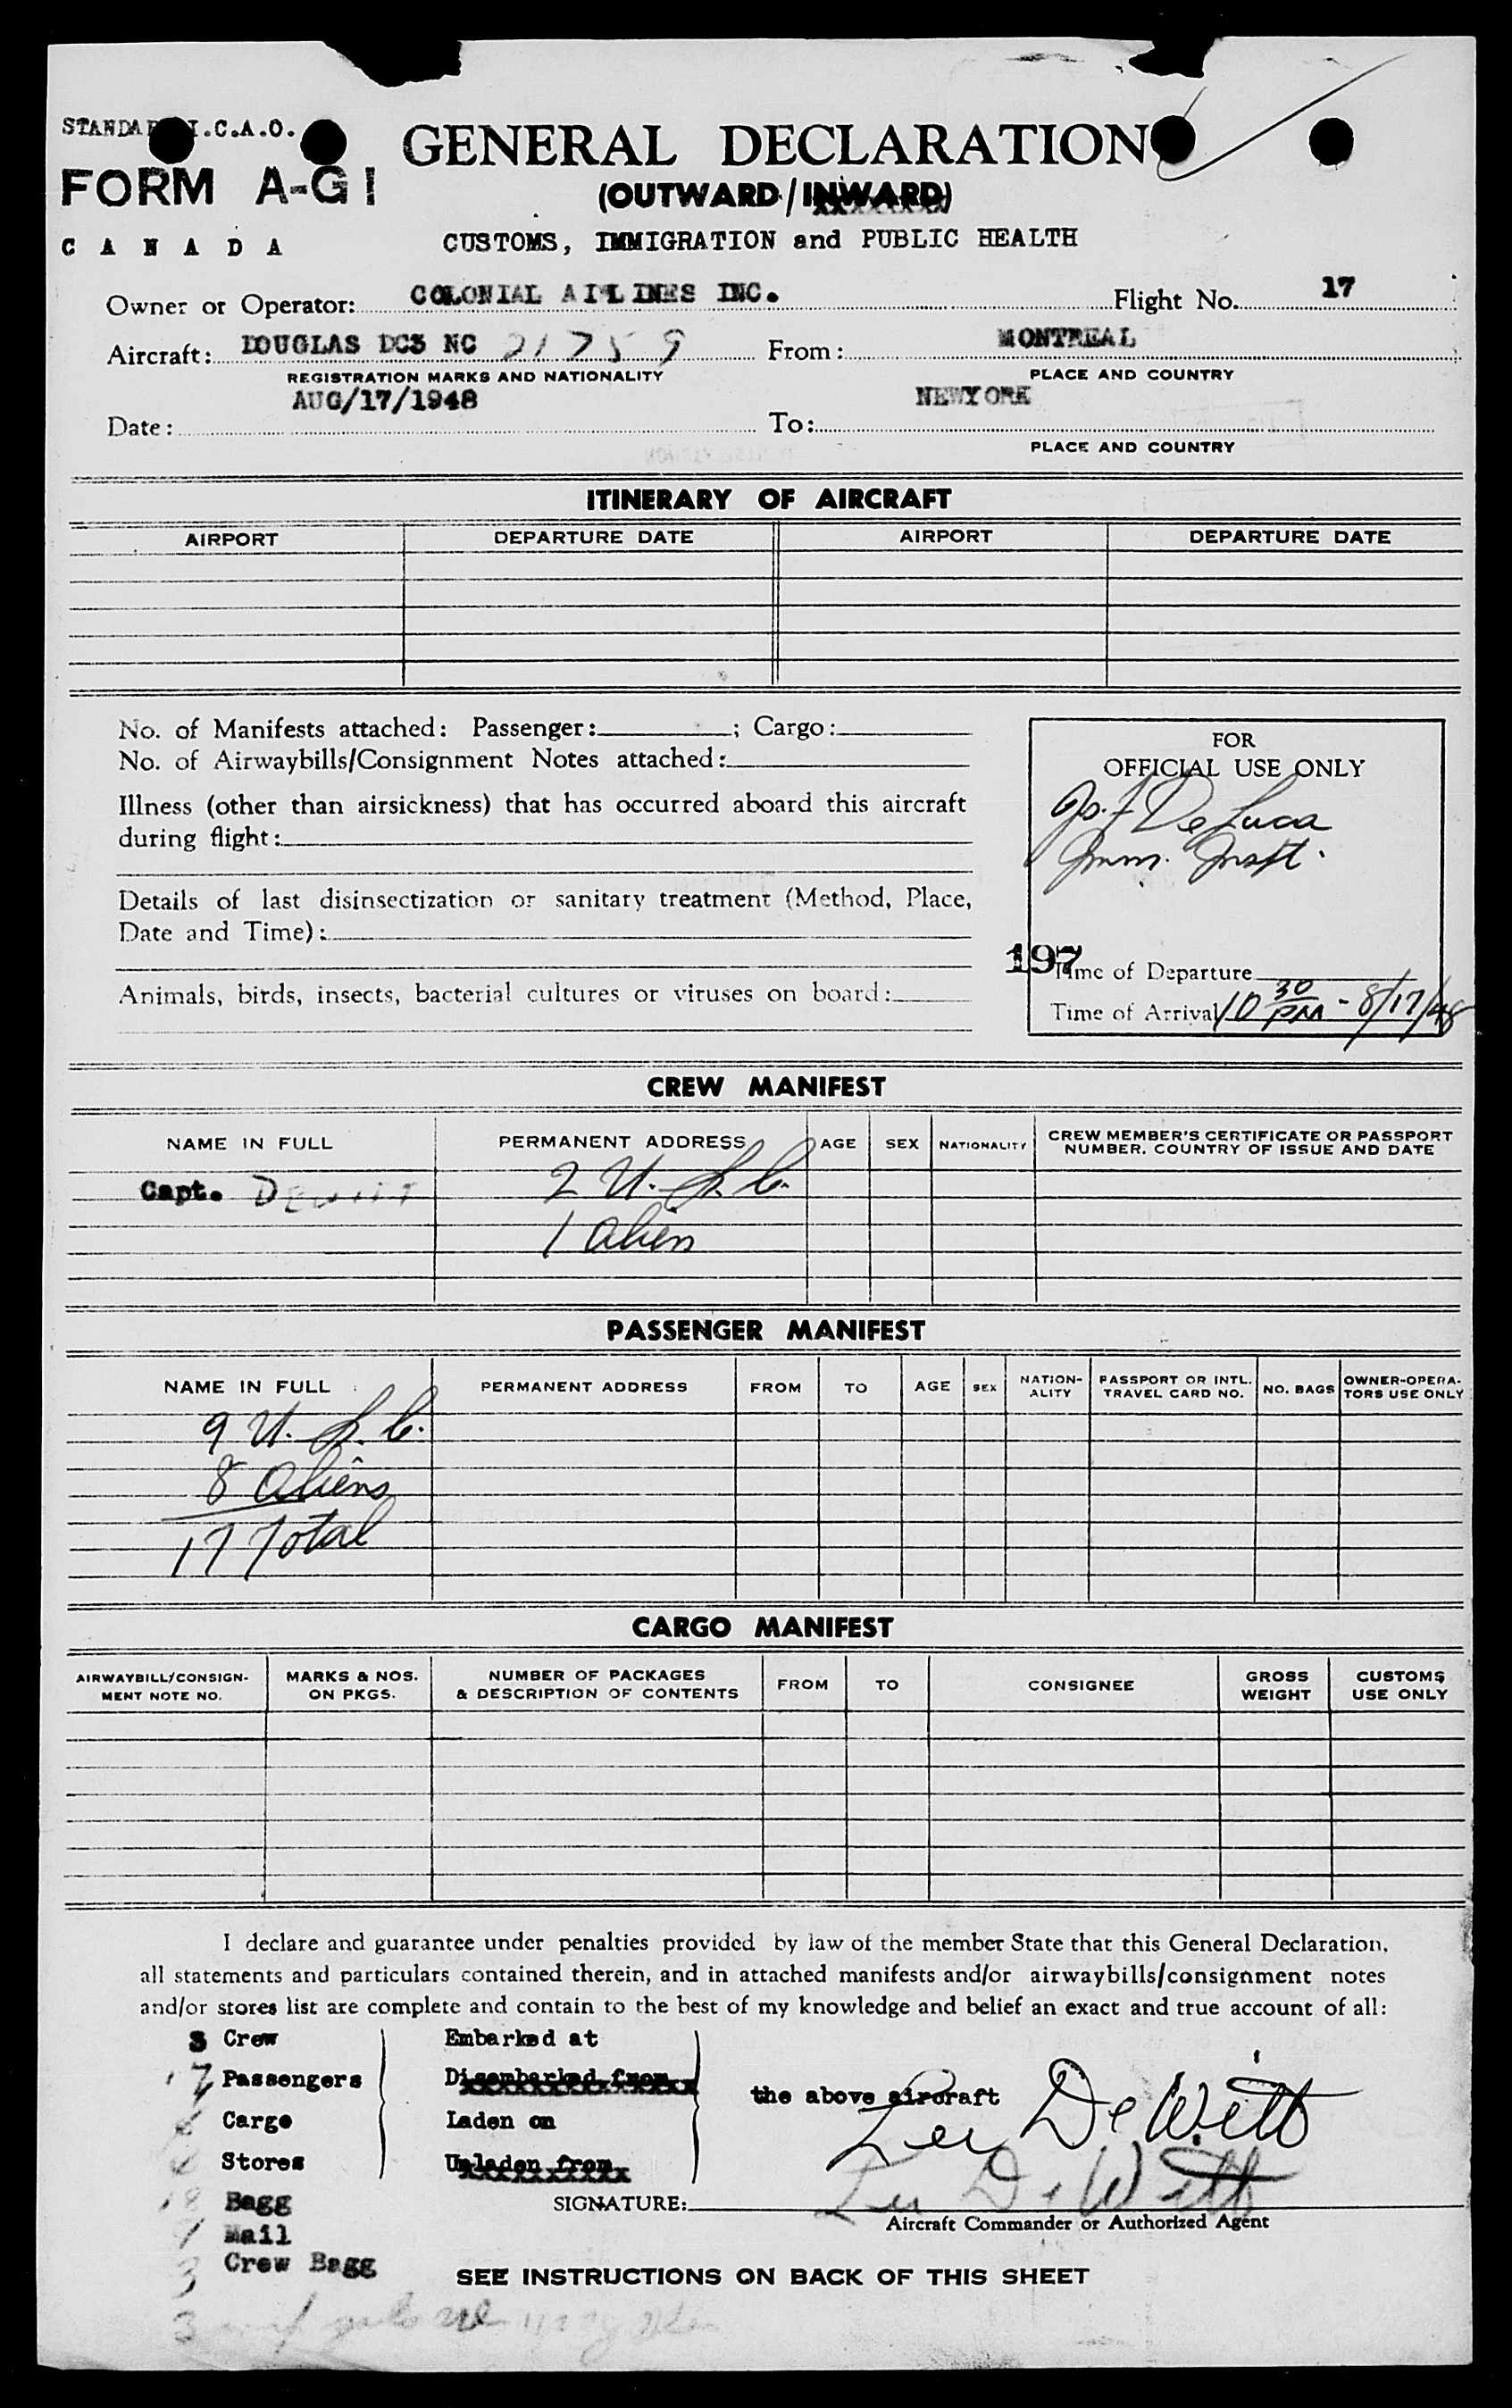 I.C.A.O.
FORM A-G1
CANADA
GENERAL DECLARATION
(OUTWARD/INWARD)
CUSTOMS, IMMIGRATION and PUBLIC HEALTH
Owner or Operator: COLONIAL AIRLINES INC. Flight No. 17
Aircraft: DOUGLAS DC3 NC 21759 From: MONTREAL
REGISTRATION MARKS AND NATIONALITY PLACE AND COUNTRY
Date: AUG/17/1948 To: NEWYORK
PLACE AND COUNTRY
ITINERARY OF AIRCRAFT
AIRPORT DEPARTURE DATE AIRPORT DEPARTURE DATE
No. of Manifests attached: Passenger: ; Cargo:
No. of Airwaybills/Consignment Notes attached:
Illness (other than airsickness) that has occurred aboard this aircraft
during flight:
Details of last disinsectization or sanitary treatment (Method, Place,
Date and Time):
Animals, birds, insects, bacterial cultures or viruses on board:
FOR
OFFICIAL USE ONLY
De Luca
Imm. Inspt.
197
Time of Departure
Time of Arrival 10 30 PM - 8/17/48
CREW MANIFEST
NAME IN FULL PERMANENT ADDRESS AGE SEX NATIONALITY CREW MEMBER'S CERTIFICATE OR PASSPORT
NUMBER, COUNTRY OF ISSUE AND DATE
Capt. DEWITT 2 U.S.C.
1 Alien
PASSENGER MANIFEST
NAME IN FULL PERMANENT ADDRESS FROM TO AGE SEX NATION-ALITY PASSPORT OR INTL. TRAVEL CARD NO. NO. BAGS OWNER-OPERA-TORS USE ONLY
9 U.S.C.
8 Aliens
17 Total
CARGO MANIFEST
AIRWAYBILL/CONSIGN-MENT NOTE NO. MARKS & NOS. ON PKGS. NUMBER OF PACKAGES & DESCRIPTION OF CONTENTS FROM TO CONSIGNEE GROSS WEIGHT CUSTOMS USE ONLY
I declare and guarantee under penalties provided by law of the member State that this General Declaration,
all statements and particulars contained therein, and in attached manifests and/or airwaybills/consignment notes
and/or stores list are complete and contain to the best of my knowledge and belief an exact and true account of all:
3 Crew Embarked at
17 Passengers Disembarked from the above aircraft
Cargo Laden on Lee DeWitt
Stores Unladen from Lee DeWitt
18 Bagg SIGNATURE:
Aircraft Commander or Authorized Agent
Mail
3 Crew Bagg
SEE INSTRUCTIONS ON BACK OF THIS SHEET